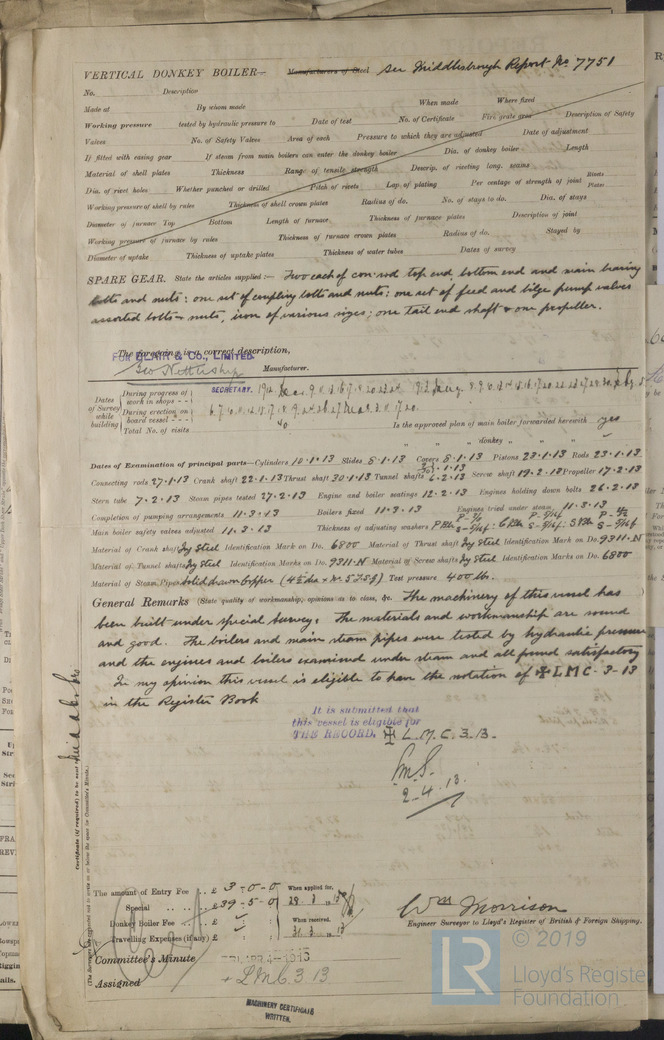 VERTICAL DONKEY BOILER— Manufacturers of Steel See Middlesbrough Report No 7751
No. Description
Made at By whom made When made Where fixed
Working pressure tested by hydraulic pressure to Date of test No. of Certificate Fire grate area Description of Safety
Valves No. of Safety Valves Area of each Pressure to which they are adjusted Date of adjustment
If fitted with easing gear If steam from main boilers can enter the donkey boiler Dia. of donkey boiler Length
Material of shell plates Thickness Range of tensile strength Descrip. of riveting long. seams
Dia. of rivet holes Whether punched or drilled Pitch of rivets Lap. of plating Per centage of strength of joint Rivets Plates
Working pressure of shell by rules Thickness of shell crown plates Radius of do. No. of stays to do. Dia. of stays
Diameter of furnace Top Bottom Length of furnace Thickness of furnace plates Description of joint
Working pressure of furnace by rules Thickness of furnace crown plates Radius of do. Stayed by
Diameter of uptake Thickness of uptake plates Thickness of water tubes Dates of survey
SPARE GEAR. State the articles supplied :— Two each of con-rod top end, bottom end and main bearing
bolts and nuts: one set of coupling bolts and nuts: one set of feed and bilge pump valves
assorted bolts & nuts, iron of various sizes; one tail end shaft & one propeller.
The foregoing is a correct description,
FOR BLAIR & CO., LIMITED.
Manufacturer.
SECRETARY.
Dates of Survey while building
During progress of work in shops - -
During erection on board vessel - - -
Total No. of visits 40 Is the approved plan of main boiler forwarded herewith yes
" " " donkey " " "
Dates of Examination of principal parts—Cylinders 10.1.13 Slides 8.1.13 Covers 8.1.13 Pistons 23.1.13 Rods 23.1.13
Connecting rods 27.1.13 Crank shaft 22.1.13 Thrust shaft 30.1.13 Tunnel shafts 6.2.13 Screw shaft 19.2.13 Propeller 17.2.13
Stern tube 7.2.13 Steam pipes tested 27.2.13 Engine and boiler seatings 12.2.13 Engines holding down bolts 26.2.13
Completion of pumping arrangements 11.3.13 Boilers fixed 11.3.13 Engines tried under steam 11.3.13
Main boiler safety valves adjusted 11.3.13 Thickness of adjusting washers
Material of Crank shaft Ing Steel Identification Mark on Do. 6800 Material of Thrust shaft Ing Steel Identification Mark on Do. 9311.H
Material of Tunnel shafts Ing Steel Identification Marks on Do. 9311.H Material of Screw shafts Ing Steel Identification Marks on Do. 6800
Material of Steam Pipes Solid drawn Copper Test pressure 400 lb.
General Remarks (State quality of workmanship, opinions as to class, &c. The machinery of this vessel has
been built under special survey. The materials and workmanship are sound
and good. The boilers and main steam pipes were tested by hydraulic pressure
and the engines and boilers examined under steam and all found satisfactory
In my opinion this vessel is eligible to have the notation of ✠ LMC-3-13
in the Register Book
It is submitted that
this vessel is eligible for
THE RECORD. ✠ L.M.C. 3.13.
2.4.13.
Certificate (if required) to be sent to
The amount of Entry Fee .. £ 3-0-0 When applied for,
Special .. .. £ 39.5.0 28.3.13
Donkey Boiler Fee .. £ When received,
Travelling Expenses (if any) £ 31.3.13
Wm Morrison
Engineer Surveyor to Lloyd's Register of British & Foreign Shipping.
Committee's Minute FRI. APR 4-1913
Assigned + LMC 3 13
MACHINERY CERTIFICATE
WRITTEN.
LR
© 2019
Lloyd's Register
Foundation